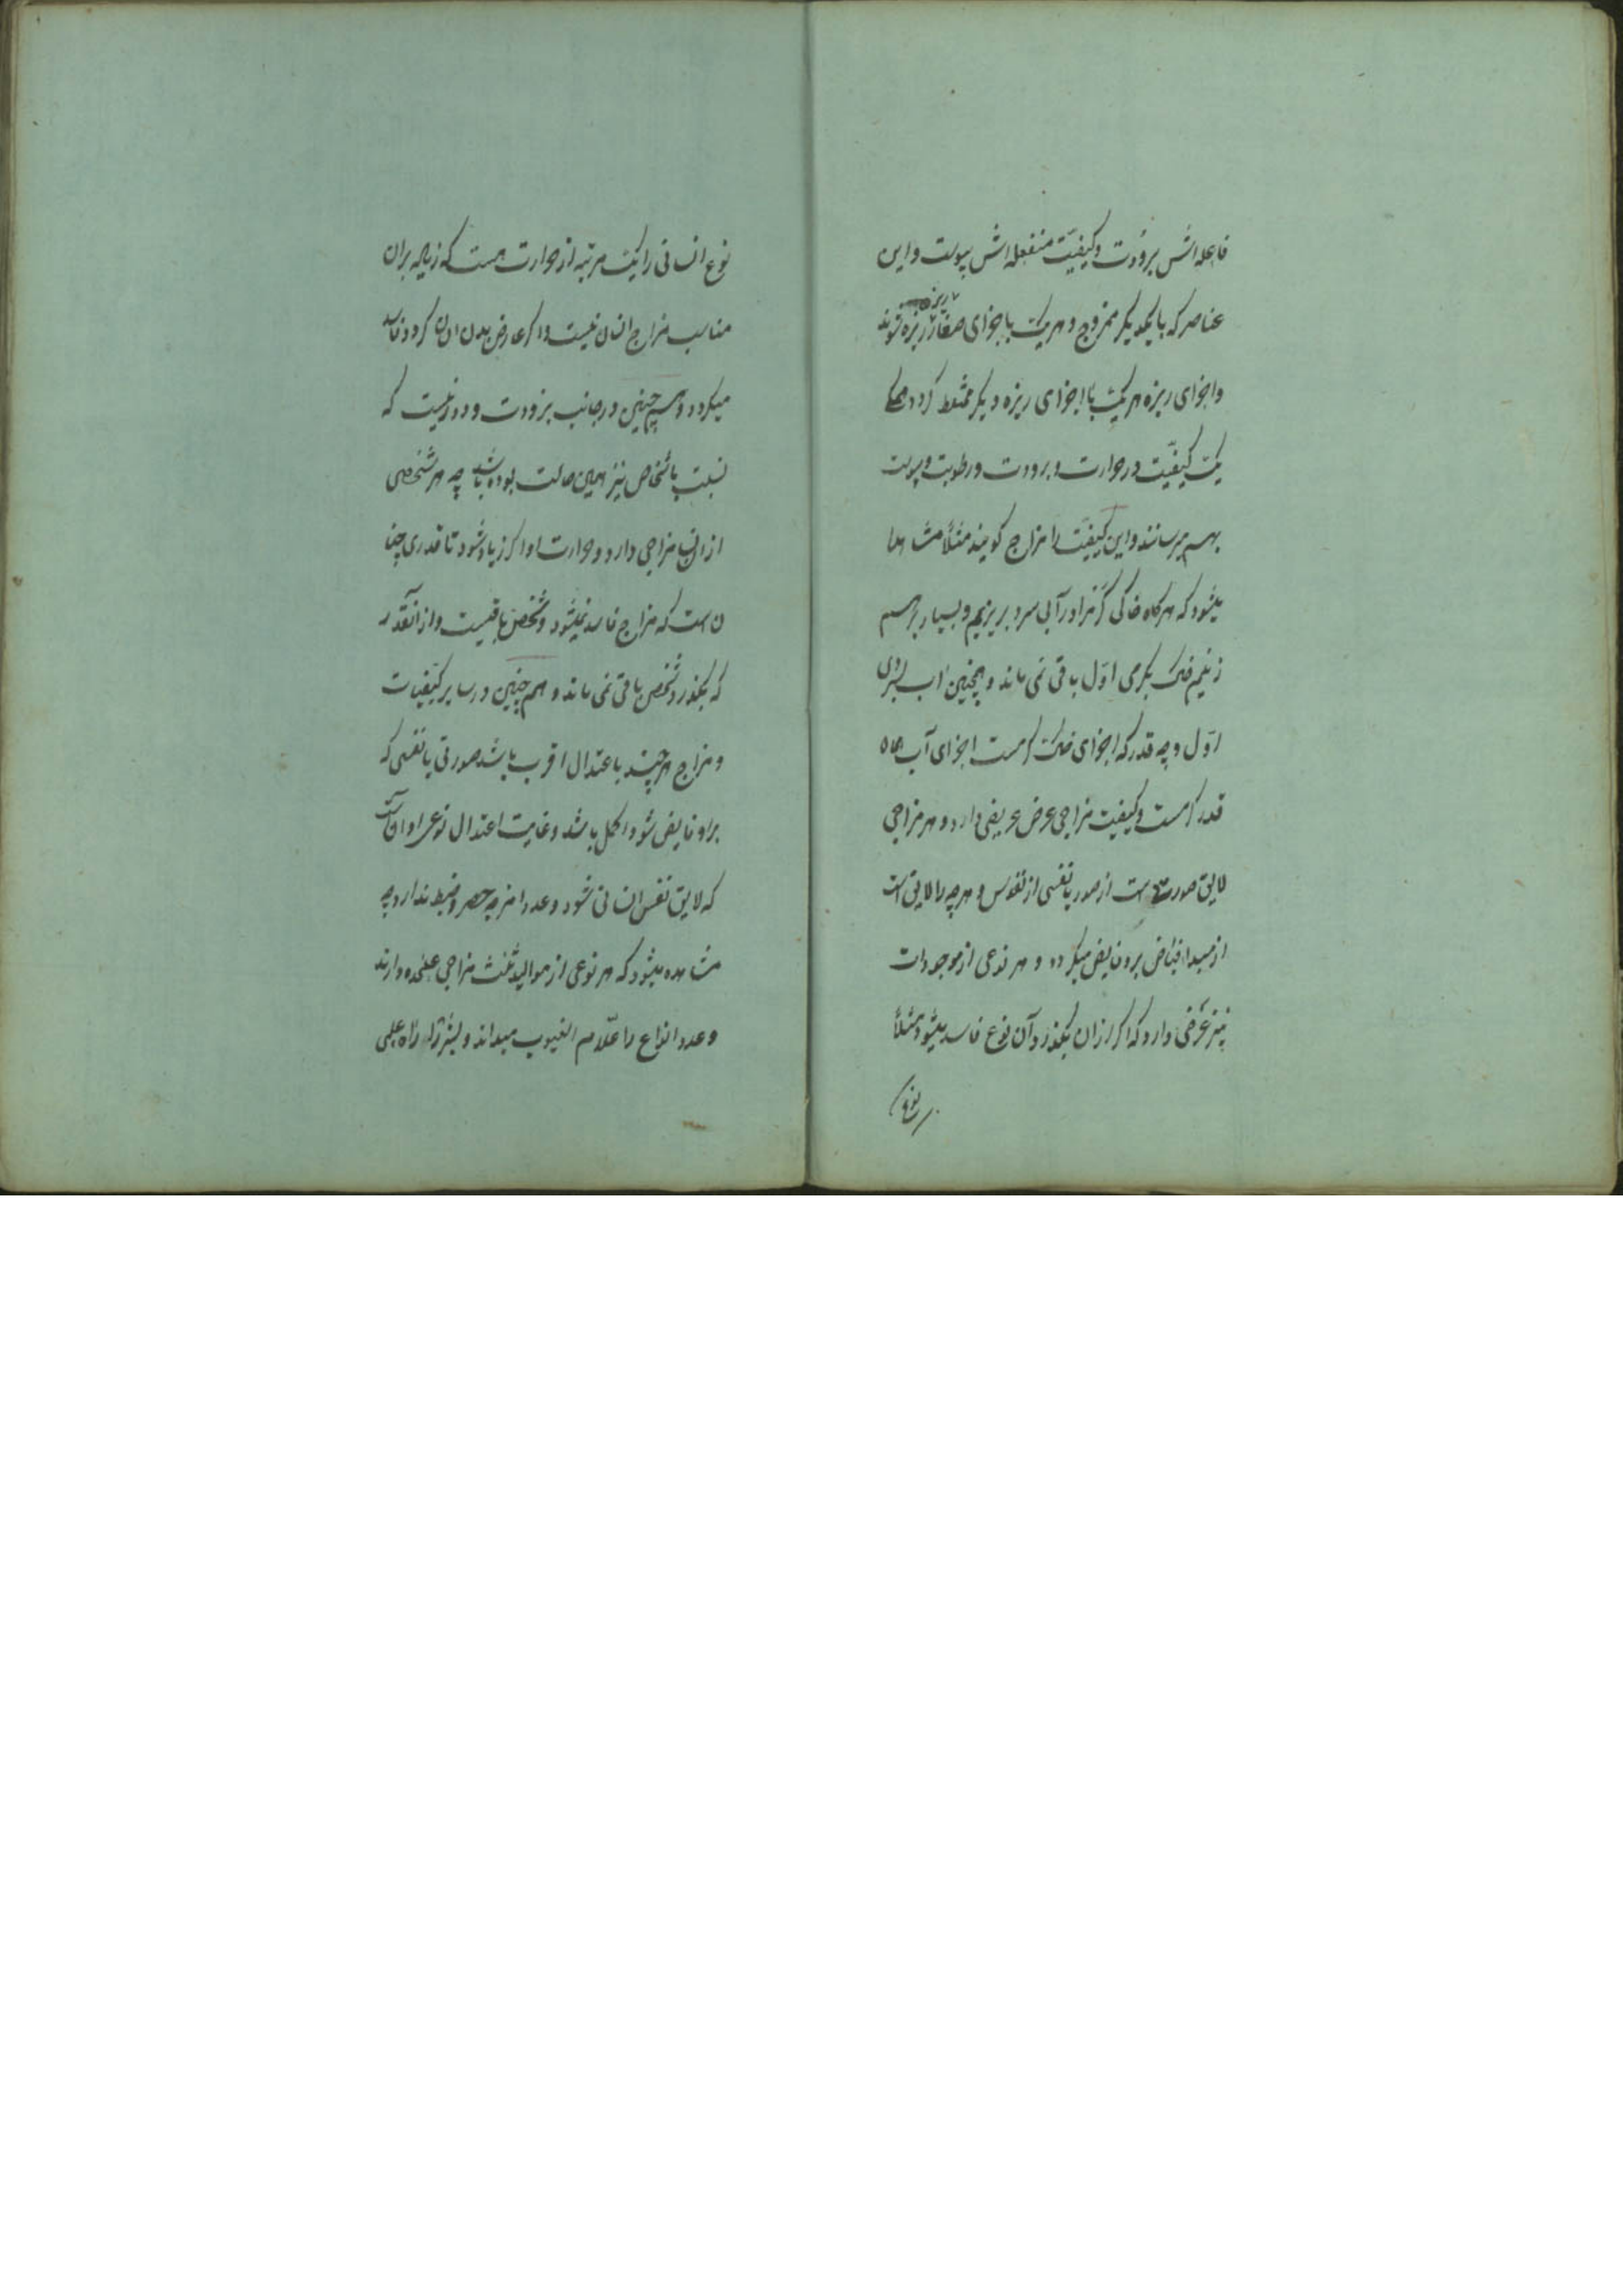 فاعله اش برودت و کیفیّت منفعله اش یبوست و این
عناصر که با یکدیگر ممزوج و هر یک باجزای صغار ریزه شوند
واجزای ریزه هر یک با اجزای ریزه دیگر مختلط گردد همکی
یک کیفیّت در حرارت و برودت و رطوبت و یبوست
بهم میرسانند و این کیفیّت را مزاج کویند مثلاً مشاهدا
میشود که هرکاه خاکی کرم را در آبی سرد بریزیم و بسیار برهم
زنیم خاک بکرمی اوّل باقی نمی ماند و همچنین آب بسردی
اوّل و چه قدر که اجزای خاک است اجزای آب همان
قدر است و کیفیت مزاجی عرض عریضی دارد و هر مزاجی
لایق صورتی است از صور یا نفسی از نفوس و هر چه را لایق است
از مبدا فیاض برو فایض میکردد و هر نوعی از موجودات
نیز عرضی دارد که اکر ازان بکذرد آن نوع فاسد میشود مثلاً
نوع
نوع انسانی را یک مرتبه از حرارت هست که زیاده بران
مناسب مزاج انسان نیست و اکر عارض بدن او کردد فاسد
میکردد و همچنین در جانب برودت و دور نیست که
نسبت باشخاص نیز همین حالت بوده باشد چه هر شخصی
از انسان مزاجی دارد و حرارت او اکر زیاد شود تا قدری چنا
ن است که مزاج فاسد نمیشود و شخص باقیست و از آنقدر
که بکذرد شخص باقی نمی ماند و همچنین در سایر کیفیّات
و مزاج هر چند باعتدال اقرب باشد صورتی یا نفسی که
براو فایض شود اکمل باشد و غایت اعتدال نوعی او آن است
که لایق نفس انسانی شود و عدد امزجه حصر و ضبط ندارد چه
مشاهده میشود که هر نوعی از موالید ثلث مزاجی علیحده دارند
و عدد انواع را علّام الغیوب میداند و بشر را راه علمی